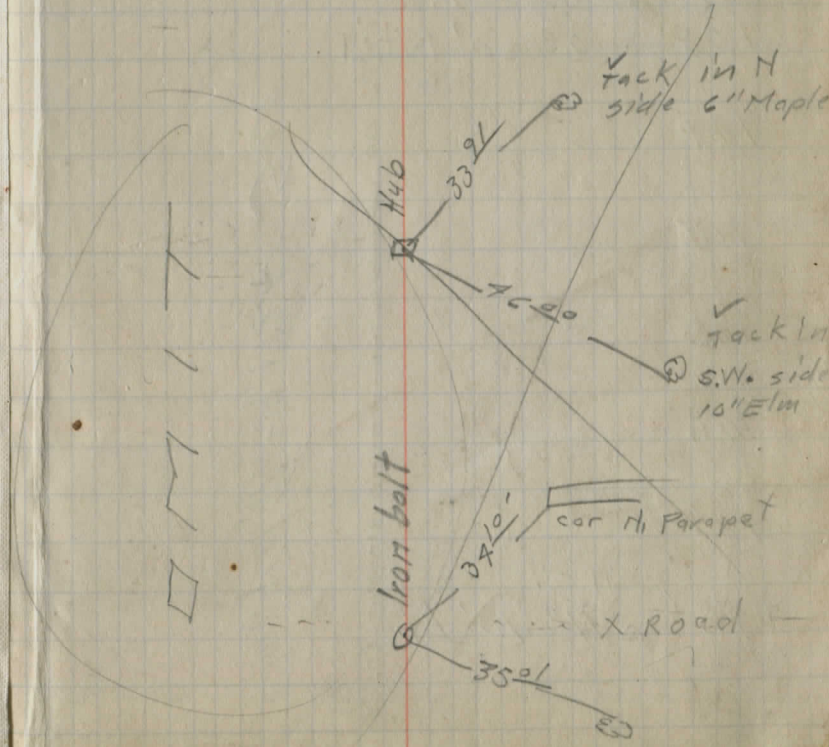 Tack in N
side 6" Maple
33 91
Hub
76 90
Tack in
S.W. side
10" Elm
OMIT
Iron bolt
34 10
cor N, Parapet
X Road
35 01